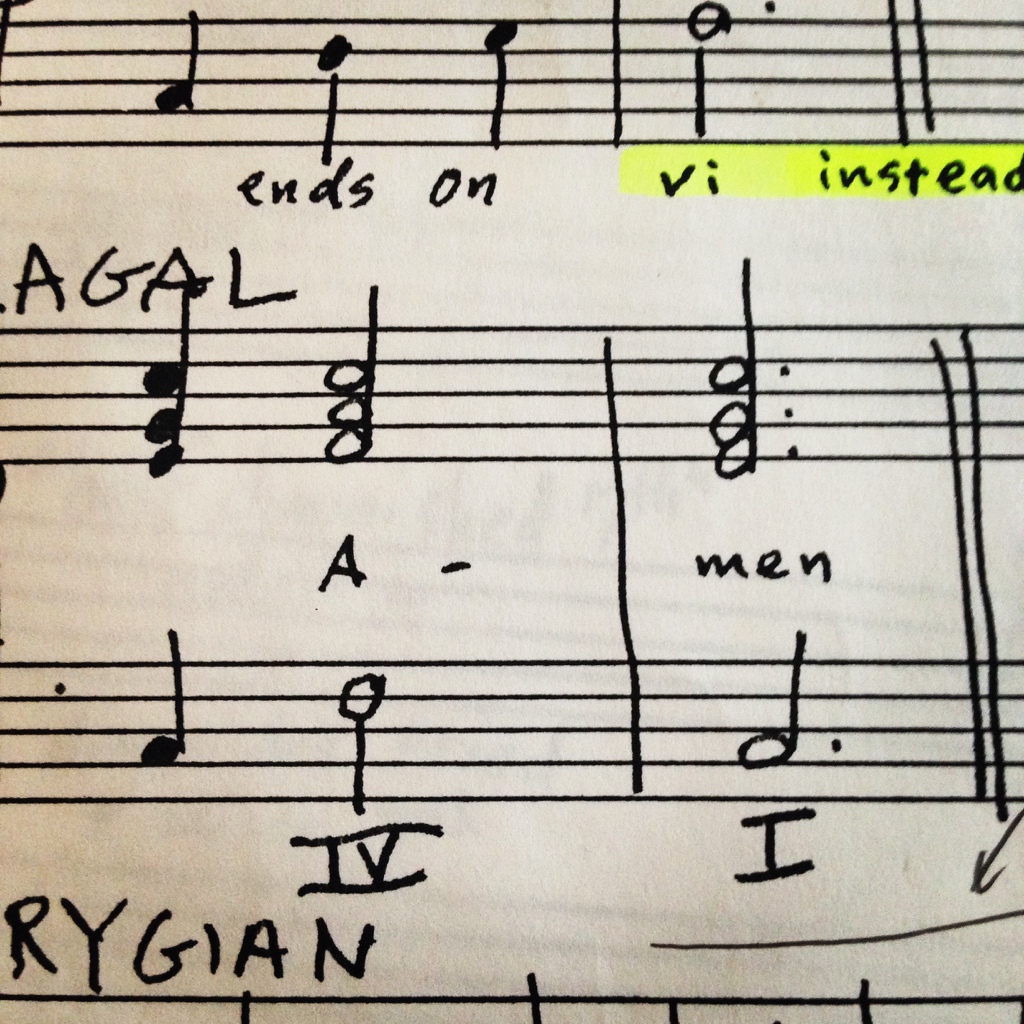 ends on vi instead
LAGAL
A - men
IV I
RYGIAN